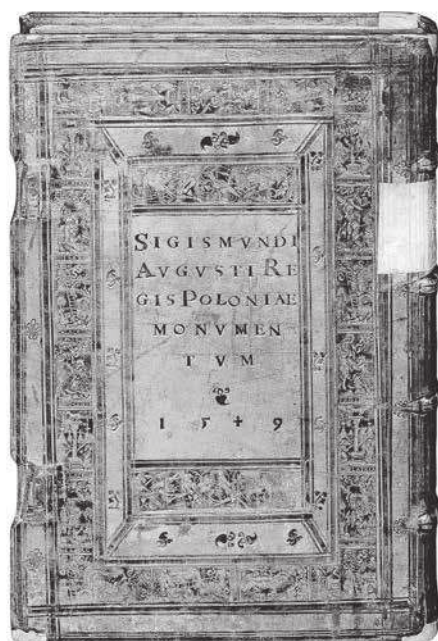 SIGISMVNDI
AVGVSTI RE
GIS POLONIAE
MONVMEN
TVM
1549